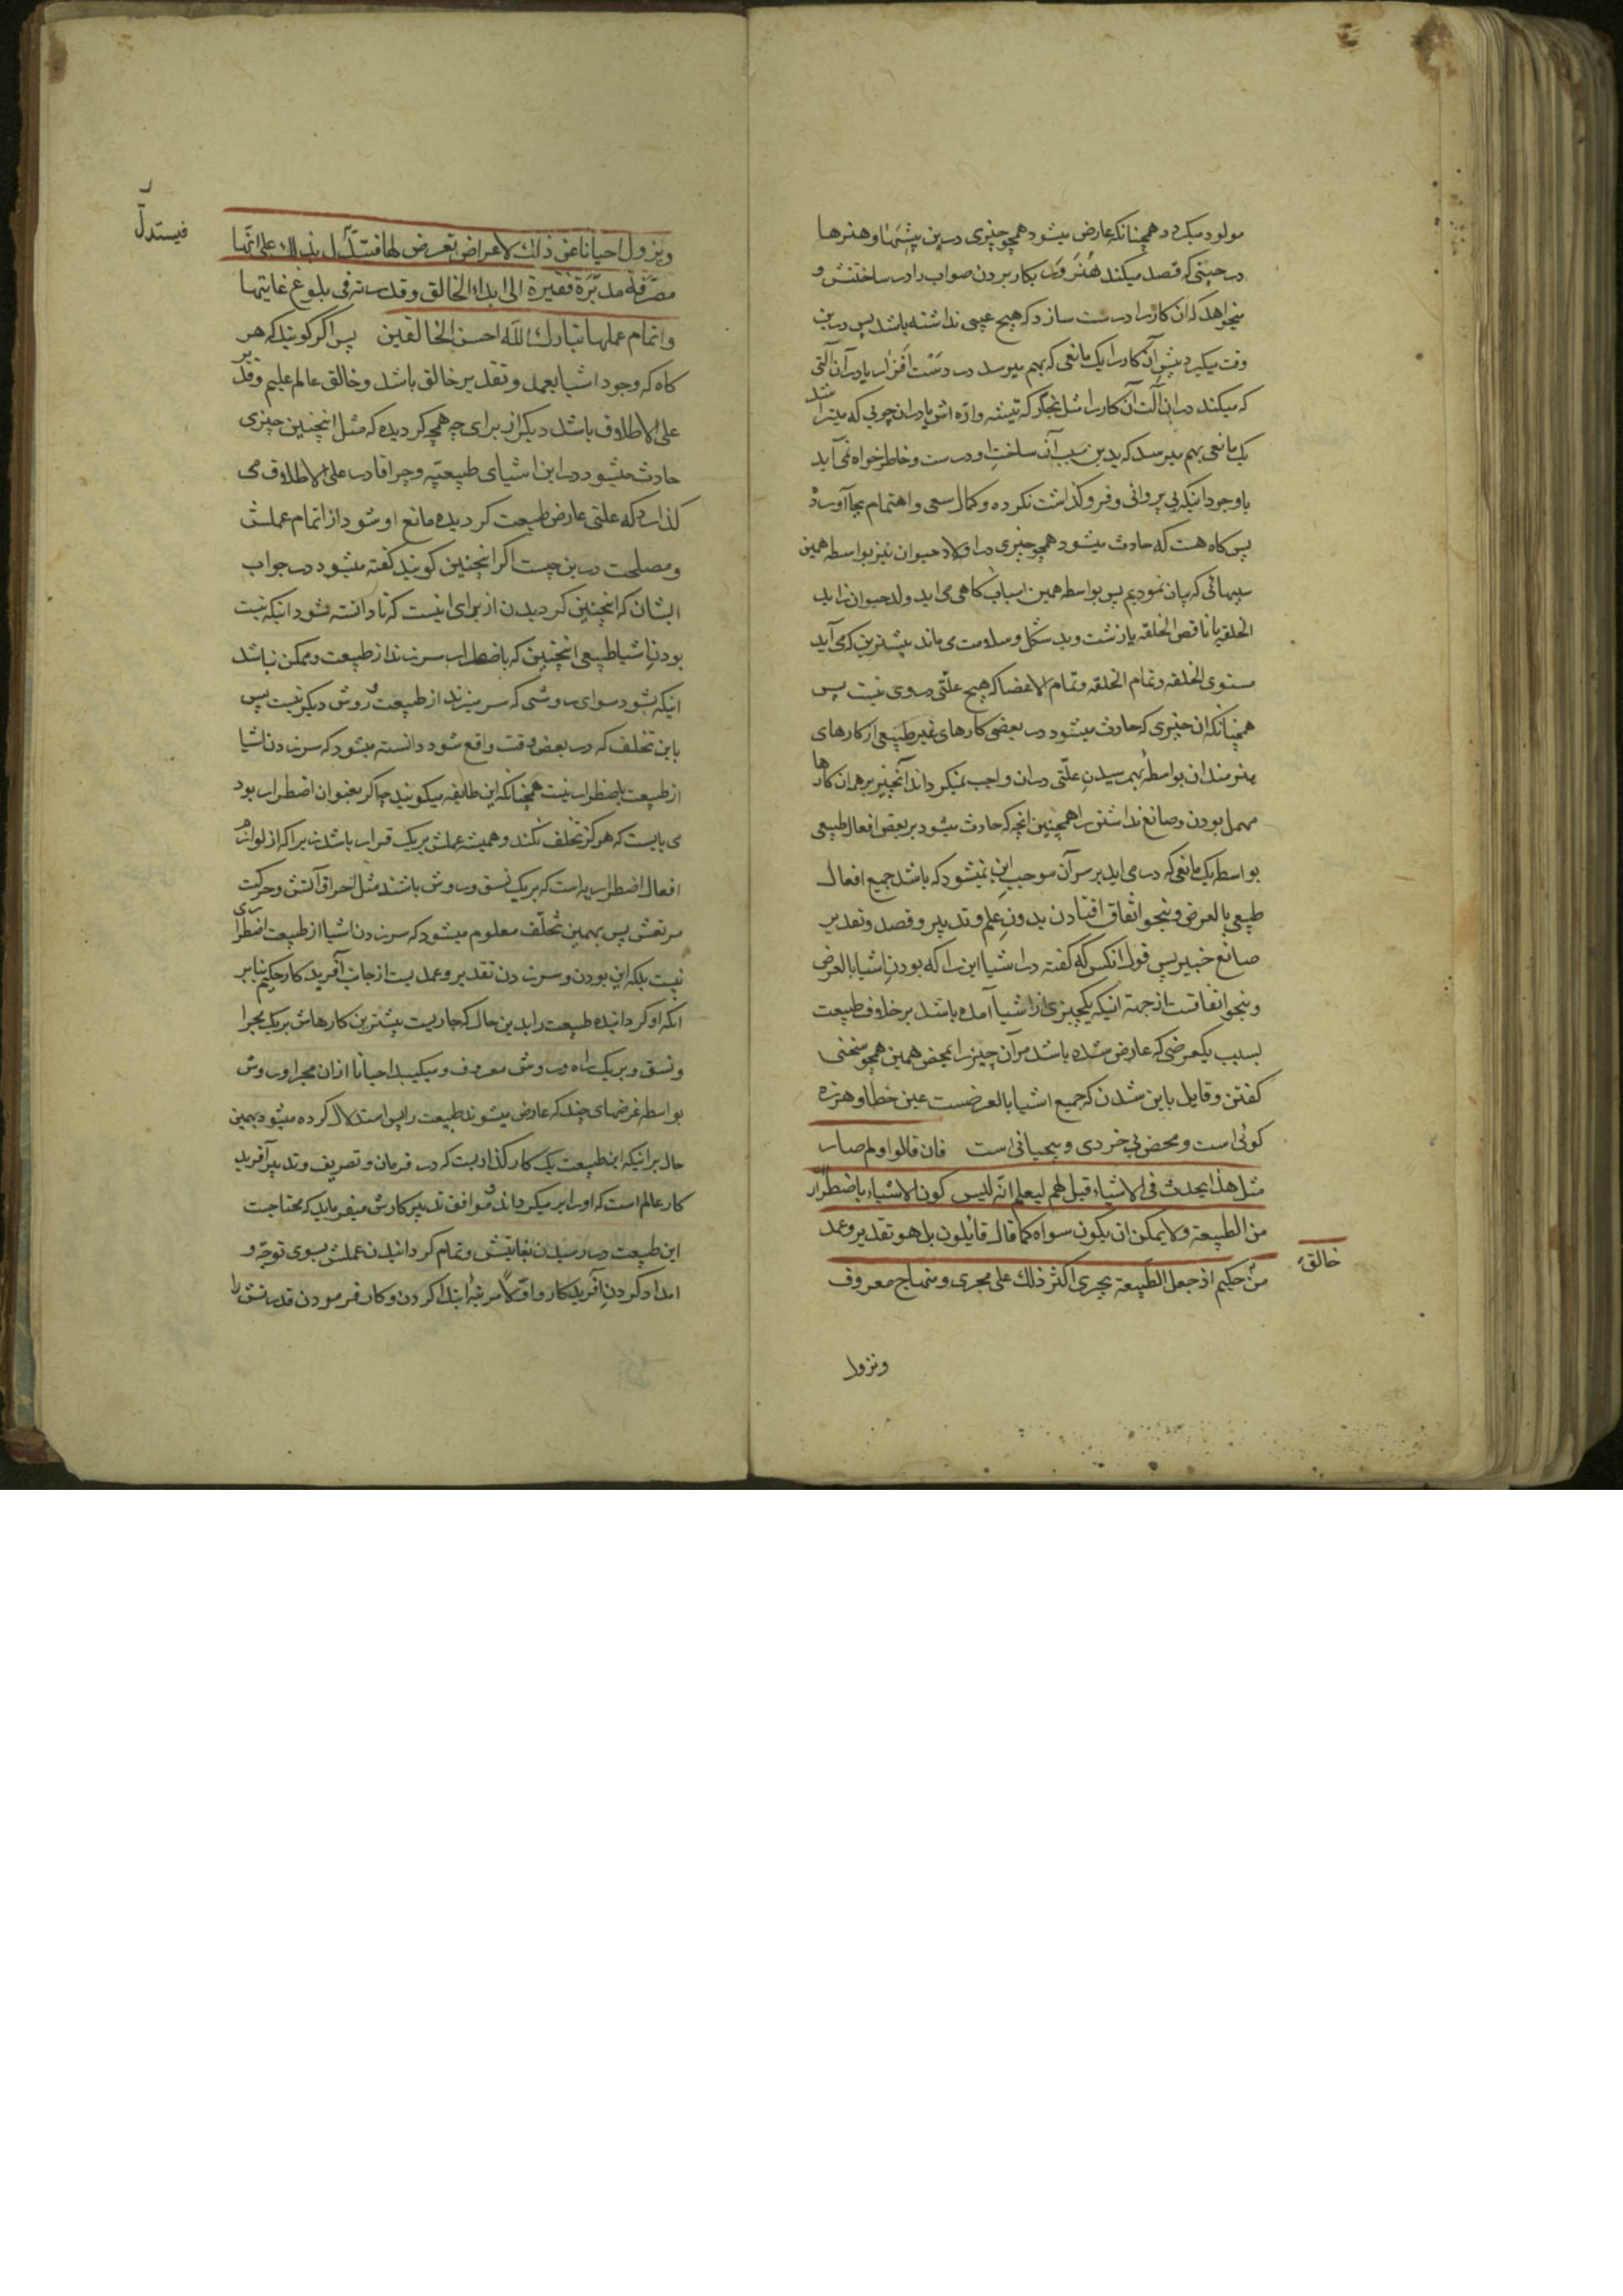 مولود میکردد همچنانکه عارض میشود همچو چیزی درین پیشها و هنرها
در حینی که قصد میکند هنرور بکار بردن صواب را در ساختنش و
میخواهد که ان کار را درست سازد که هیچ عیبی نداشته باشد پس درین
وقت میکیرد پیش آن کار را یک مانعی که بهم میرسد در دست افزار یا در آن آلتی
که میکند در ان آلت آن کار را مثل نجار که تیشه واره اش یا در ان چوبی که میتراشد
یک مانعی بهم میرسد که بدین سبب آن ساختن او درست و خاطر خواه نمی آید
باوجود انیکه بی پروائی و فروکذاشت نکرده و کمال سعی و اهتمام بجا آورده
پس کاه هست که حادث میشود همچو چیزی در اولاد حیوان نیز بواسطه همین
سببهائی که بیان نمودیم پس بواسطه همین اسباب کاهی می اید ولد حیوان زاید
الخلقه یا ناقص الخلقه یا زشت و بد شکل و سلامت می ماند بیشترین که می آید
مستوی الخلقه و تمام الخلقه و تمام الاعضا که هیچ علتی در وی نیست پس
همچنانکه ان چیزی که حادث میشود در بعضی کارهای غیر طبیعی از کارهای
هنرمندان بواسطه بهم رسیدن علتی در ان واجب نمیکرداند آنچیز بر همه ان کارها
مهمل بودن و صانع نداشتن را همچنین انچه که حادث میشود بر بعض افعال طبیعی
بواسطه یک مانعی که در می اید بر سر آن موجب این نمیشود که باشد جمیع افعال
طبیعی بالعرض و بنحو اتفاق افتادن بدون علم و تدبیر و قصد و تقدیر
صانع خبیر پس قول انکس که کفته در اشیا این را که بودن اشیا بالعرض
و بنحو اتفاقست از جهت انیکه یکچیزی از اشیا آمده باشد بر خلاف طبیعت
بسبب یکعرضی که عارض شده باشد مر آن چیز را بمحض همین همچو سخنی
کفتن و قایل باین شدن که جمیع اشیا بالعرضست عین خطا و هرزه
کوئی است و محض بی خردی و بیحیائی است فان قالوا و لم صار
مثل هذا یحدث فی الاشیاء قیل لهم لیعلم انه لیس کون الاشیاء باضطرار
من الطبیعة ولا یمکن ان یکون سواه کما قال قایلون بل هو تقدیر وعمد
من حکیم اذ جعل الطبیعة یجری اکثر ذلك علی مجری و منهاج معروف
خالق
ونزول
ویزول احیانا عن ذلك لاعراض تعرض لها فتدل بذلك علی انها
فیستدل
مصرفة مدبرة فقیرة الی ابداء الخالق و قدرته فی بلوغ غایتها
واتمام عملها تبارك الله احسن الخالقین پس اکر کویند که هر
کاه که وجود اشیا بعمد و تقدیر خالق باشد و خالق عالم علیم و قدیر
علی الاطلاق باشد دیکر از برای چه همچه کردیده که مثل اینچنین چیزی
حادث میشود در این اشیای طبیعیه و چرا قادر علی الاطلاق می
کذارد که علتی عارض طبیعت کردیده مانع او شود از اتمام عملش
و مصلحت درین چیست اکر اینچنین کویند کفته میشود در جواب
ایشان که اینچنین کردیدن از برای اینست که تا دانسته شود انیکه نیست
بودن اشیا طبیعی اینچنین که باضطرار سر زند از طبیعت و ممکن نباشد
انیکه بشود سوای روشی که سر میزند از طبیعت و روش دیکر نیست پس
باین تخلف که در بعض وقت واقع شود دانسته میشود که سر زدن اشیا
از طبیعت باضطرار نیست همچنانکه این طایفه میکویند چه اکر بعنوان اضطرار بود
می بایست که هرکز تخلف نکند و همیشه عملش بر یک قرار باشد زیرا که از لوازم
افعال اضطراریه است که بر یک نسق و روش باشند مثل احراق آتش و حرکت
مرتعش پس بهمین تخلف معلوم میشود که سر زدن اشیا از طبیعت اضطراری
نیست بلکه این بودن و سر زدن تقدیر و عمدیست از جانب آفریدکار حکیم بنابر
انکه او کردانیده طبیعت را بدین حال که جاریست بیشترین کارهاش بر یک مجرا
و نسق و بر یک راه و روش معروف و میکیبد احیانا ازان مجرا و روش
بواسطه عرضهای چند که عارض میشوند طبیعت را پس استدلال کرده میشود بهمین
حال بر انیکه این طبیعت یک کارکذاریست که در فرمان و تصریف و تدبیر آفرید
کار عالم است که او را بر میکرداند و موافق تدبیر کارش میفرماید که محتاجست
این طبیعت در رسیدن بغایتش و تمام کردانیدن عملش بسوی توجه و
امداد کردن آفریدکار و اولا مرتبه ابتدا کردن و کار فرمودن قدرتش را